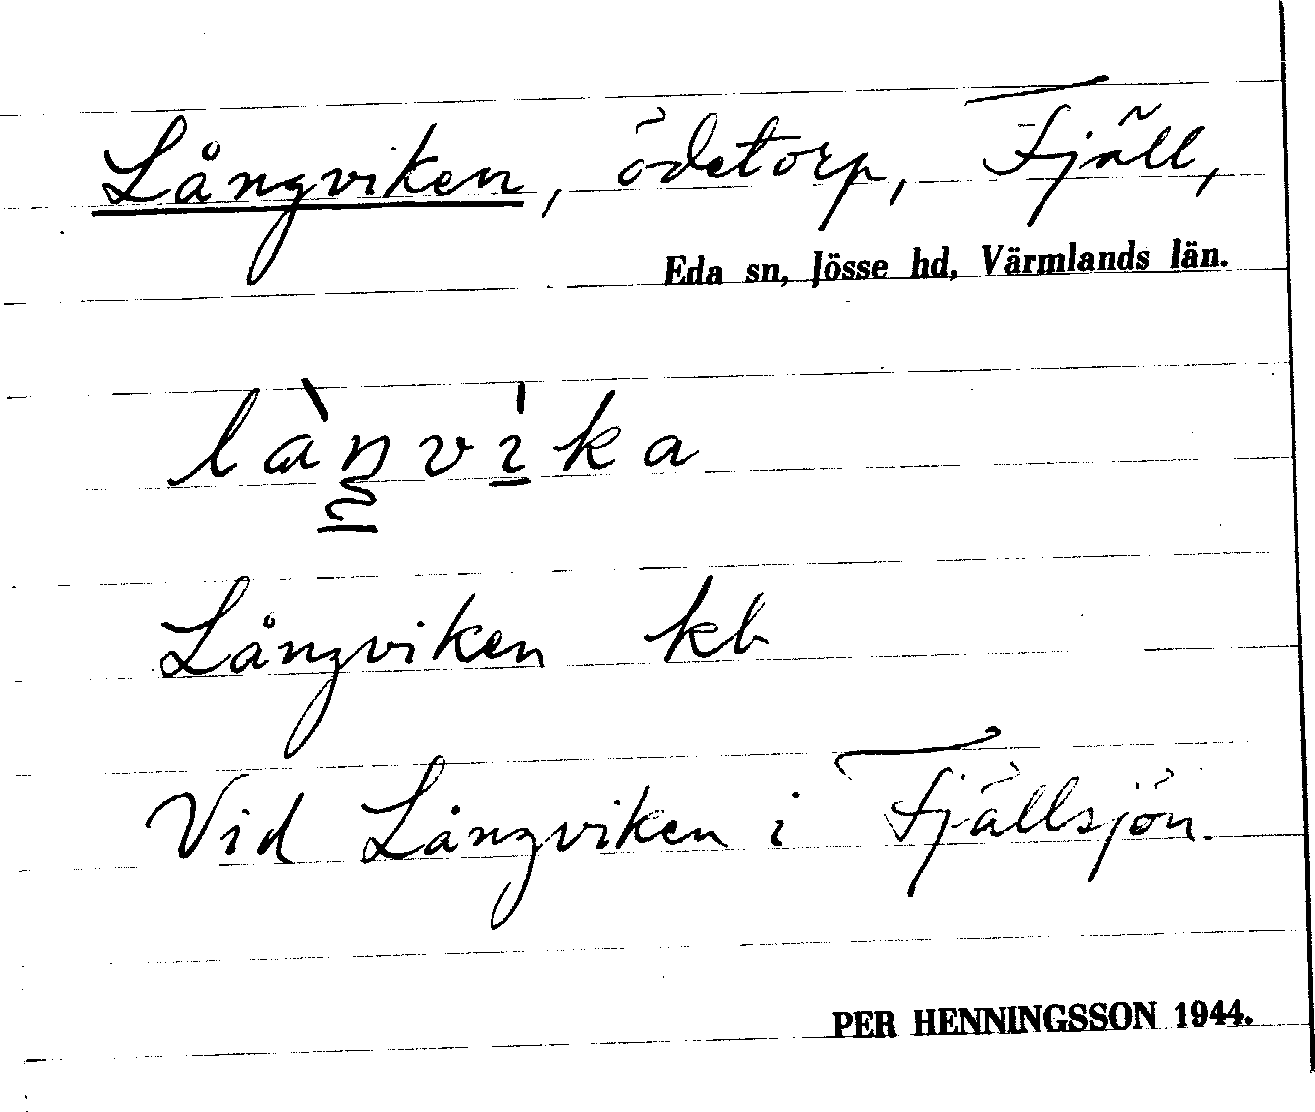 Långviken, ödetorp, Fjäll,
Eda sn, Jösse hd, Värmlands län.
làŋvı̍ka
Långviken kb
Vid Långviken i Fjällsjön.
PER HENNINGSSON 1944.